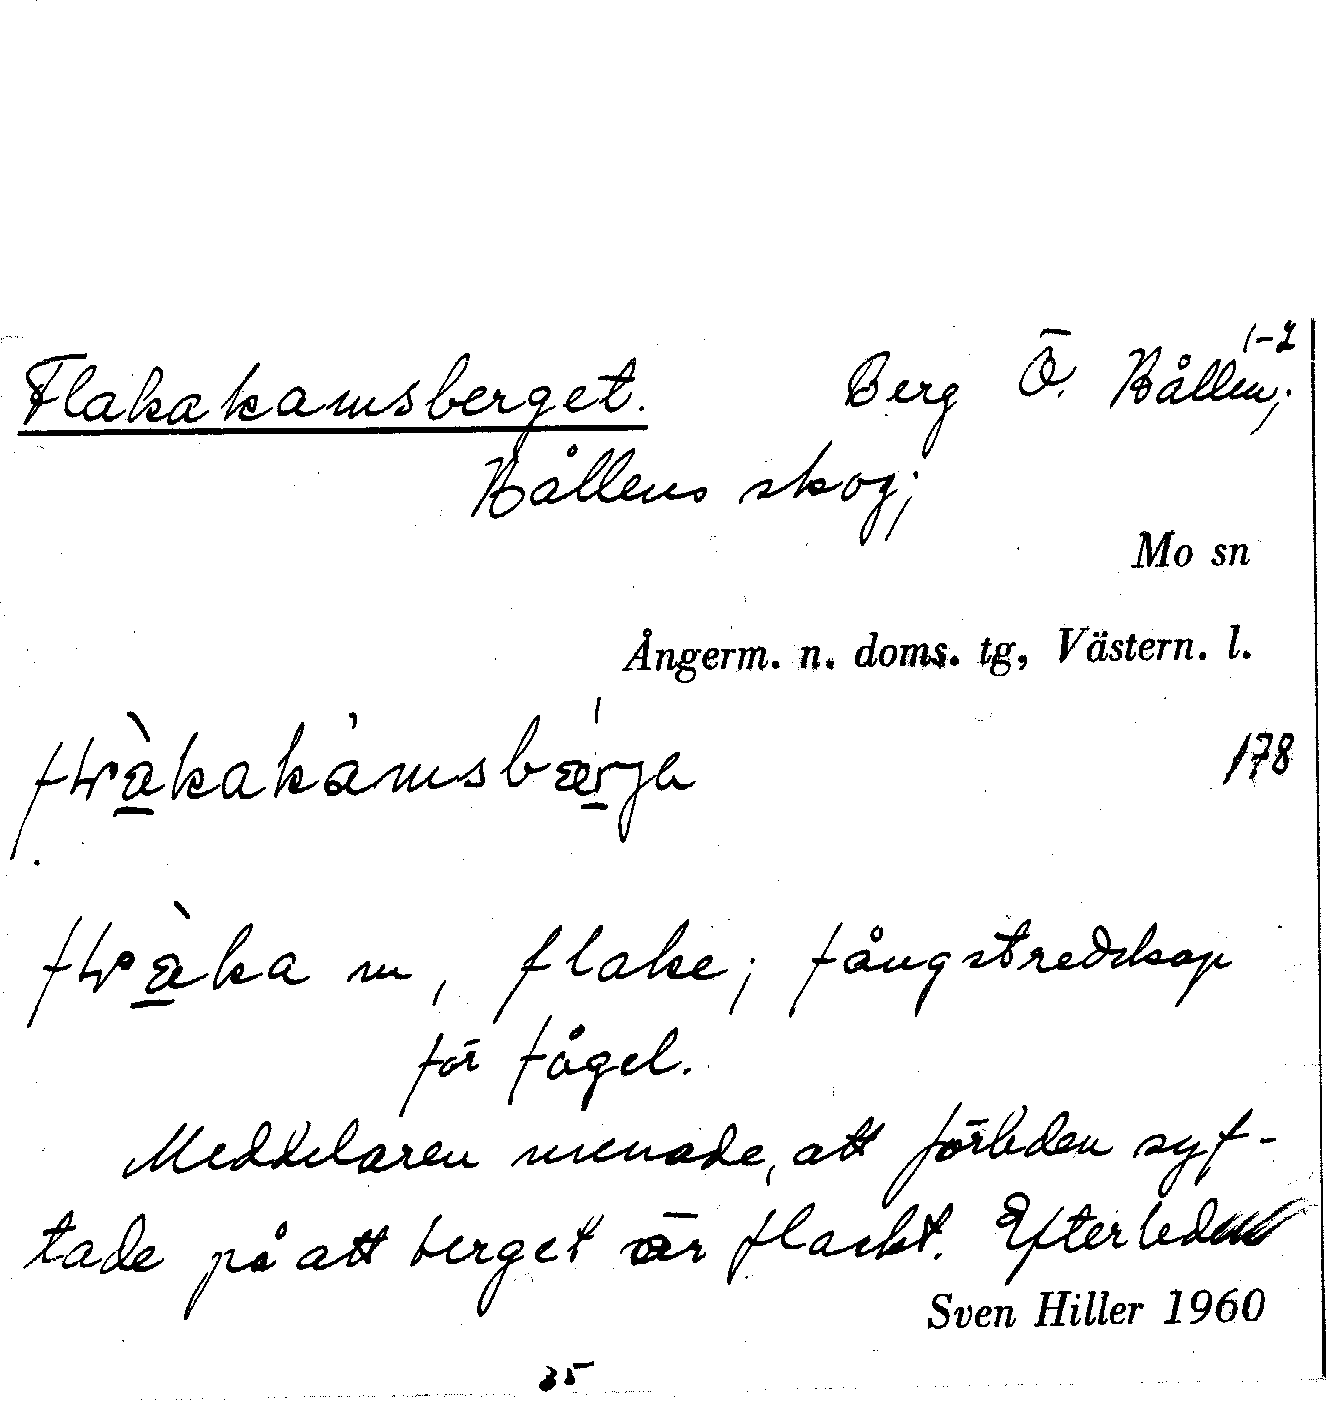 1-2
Flakakamsberget. Berg Ö. Bållen;
Bållens skog;
Mo sn
Ångerm. n. doms. tg, Västern. l.
178
m, flake; fångstredskap
för fågel.
Meddelaren menade, att förleden syf-
tade på att berget är flackt. Efterleden
Sven Hiller 1960
35